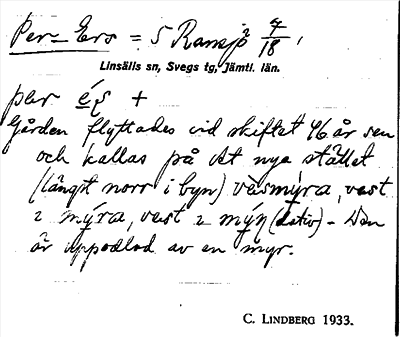 Per-Ers = S Ransjö 7/18,
Linsälls sn, Svegs tg, Jämtl. län.
per
Gården flyttades vid skiftet 46 år sen
och kallas på det nya stället
(längst norr i byn) vèsmýra, vest
2 mýra, vest 2 mýn (dativ) - Den
är uppodlad av en myr.
C. LINDBERG 1933.